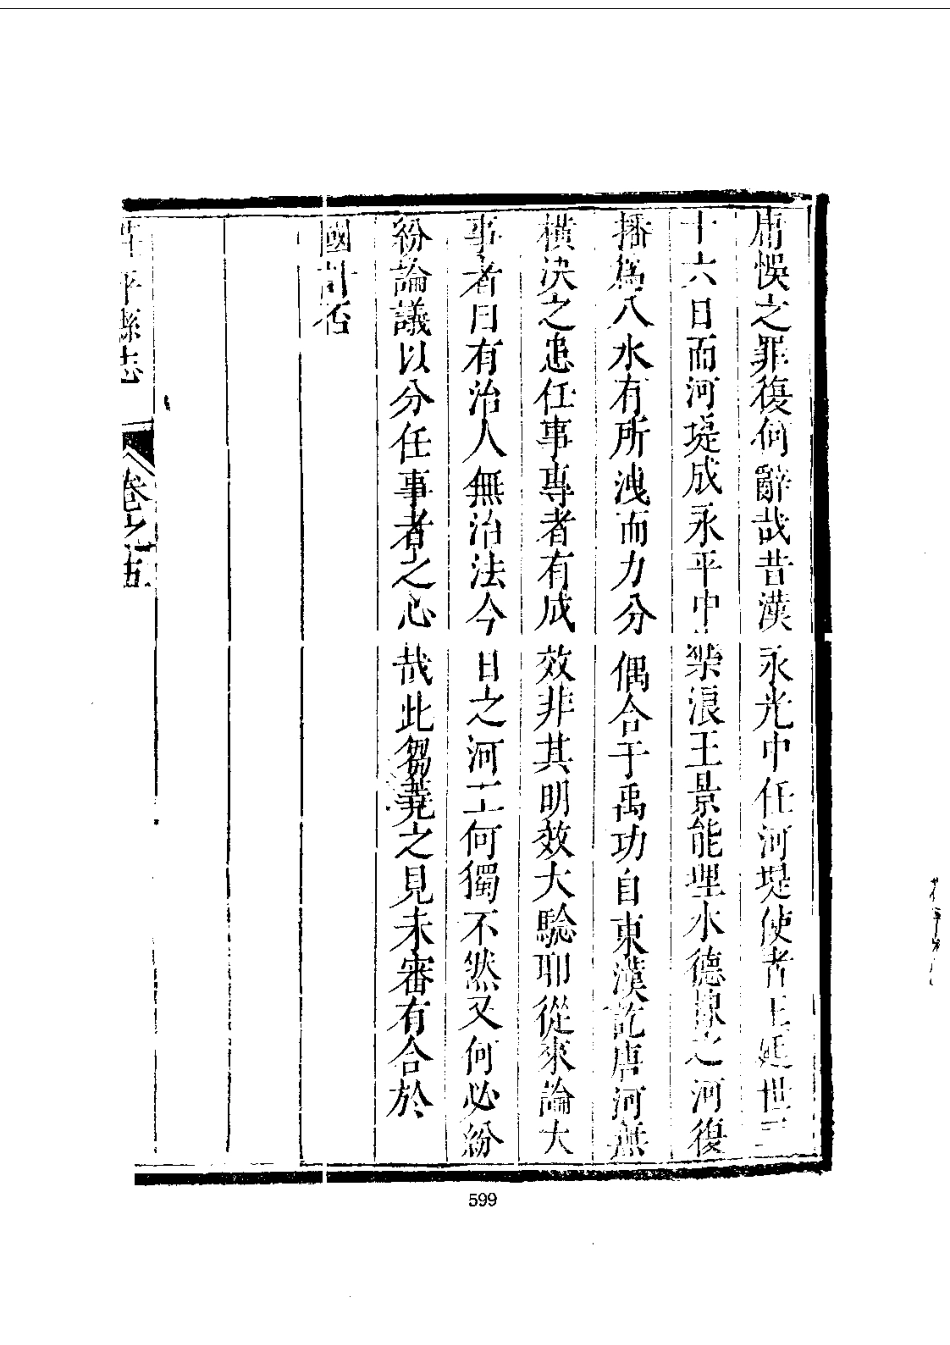 悞之罪復何辭哉昔漢永光中任河堤使者王延世三
十六日而河堤成永平中樂浪王景能理水德棣之河復
播爲八水有所洩而力分偶合于禹功自東漢訖唐河無
橫決之患任事專者有成效非其明效大驗耶從來論大
事者曰有治人無治法今日之河工何獨不然又何必紛
紛論議以分任事者之心哉此芻蕘之見未審有合於
國計否
平縣志 卷之五
599